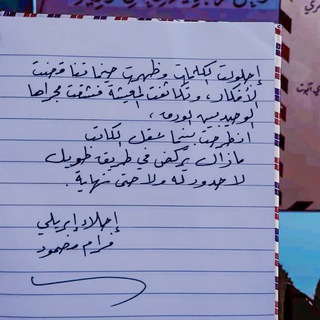 إحلولت الكلمات وظهرت حينما تنا قضت
الأفكار ، وتكاثفت المعيشة فشقت مجراها
الوحيد بين الورق ،
انطرحت بينما عقل الكاتب
مازال يركض في طريق طويل
لا حدود له ولا حتى نهاية .
إجلاء إبريلي
مرام محمود